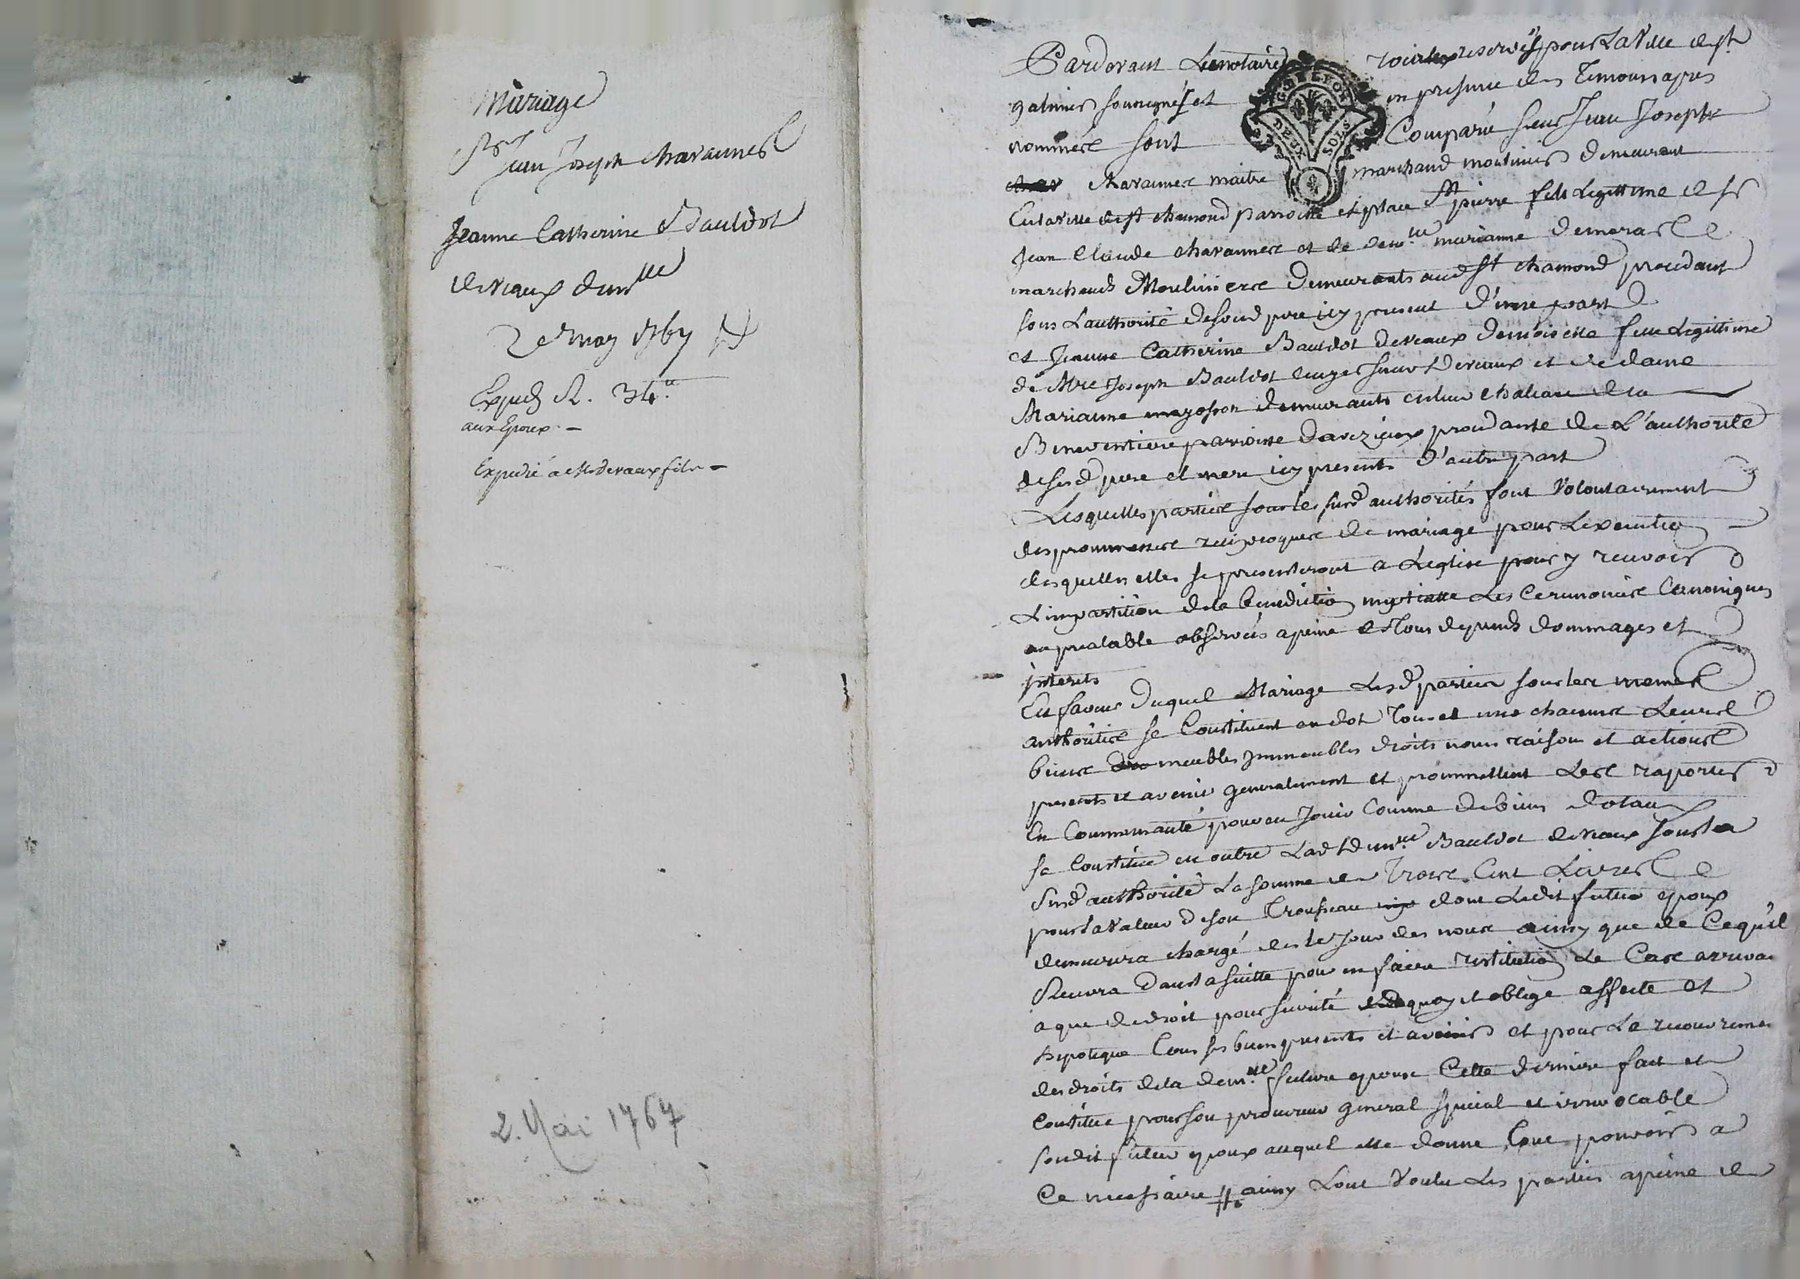 Mariage
Sr Jean Joseph chavannes
Jeanne Catherine Bauldot
devaux dem.lle
2e may 1767
Expedié 34.
aux Epoux. -
Expedié a Mr devaux fils -
2. Mai 1767
Pardevant Le notaire royal reservé pour La Ville de St
galmier soussigné et en presence des Temoins apres
nommés sont Comparu sieur Jean Joseph
GN DE LYON
DEUX SOLS
chavannes maitre marchand moulinier demeurant
En la ville de St chamond parroisse et place St pierre fils Legittime de sr
Jean Claude chavannes et de dem.lle marianne demoras
marchands Mouliniers demeurants aud St chamond procedant
sous L'authorité de son d pere icy present d'une part
et Jeanne Catherine Bauldot devaux demoiselle fille Legittime
de Mre Joseph Bauldot ecuyer sieur devaux et de dame
Marianne demeurants en leur chateau de la
parroisse d'aveizieux procedante de L'authorité
de sesd pere et mere icy presents d'autre part
Lesquelles parties sous les susd authorités font Volontairement
des prommesses reciproques de mariage pour L'execution
desquelles elles se presenteront a L'eglise pour y recevoir
L'impartition de la benediction Les Ceremonies Canoniques
au prealable observées a peine de Tous depends dommages et
interets
En faveur duquel Mariage Lesd parties sous les memes
authorités se Constituent en dot Tous et uns chacuns Leurs
biens meubles immeubles droits noms raisons et actions
presents et avenir generalement et prommettent Les raporter
En Communauté pour en Jouir Comme de biens dotaux
se Constitue en outre Lad dem.lle Bauldot devaux sous la
susd authorité La somme de Trois Cent Livres
pour la valeur de son Trousseau dont Ledit futur epoux
demeurera chargé des le Jour des noces ainsy que de Ce qu'il
Recevra dans la suitte pour en faire restitution Le Cas arrivant
a que de droit pour sureté de quoy il oblige affecte et
hipoteque Tous ses biens presents et avenir et pour Le recouvrement
des droits de la dem.lle future epouse Cette derniere fait et
Constitue pour son procureur general special et irrevocable
sondit futur epoux auquel elle donne Tout pouvoir a
Ce necessaire ainsy Tout Voulu Les parties a peine de